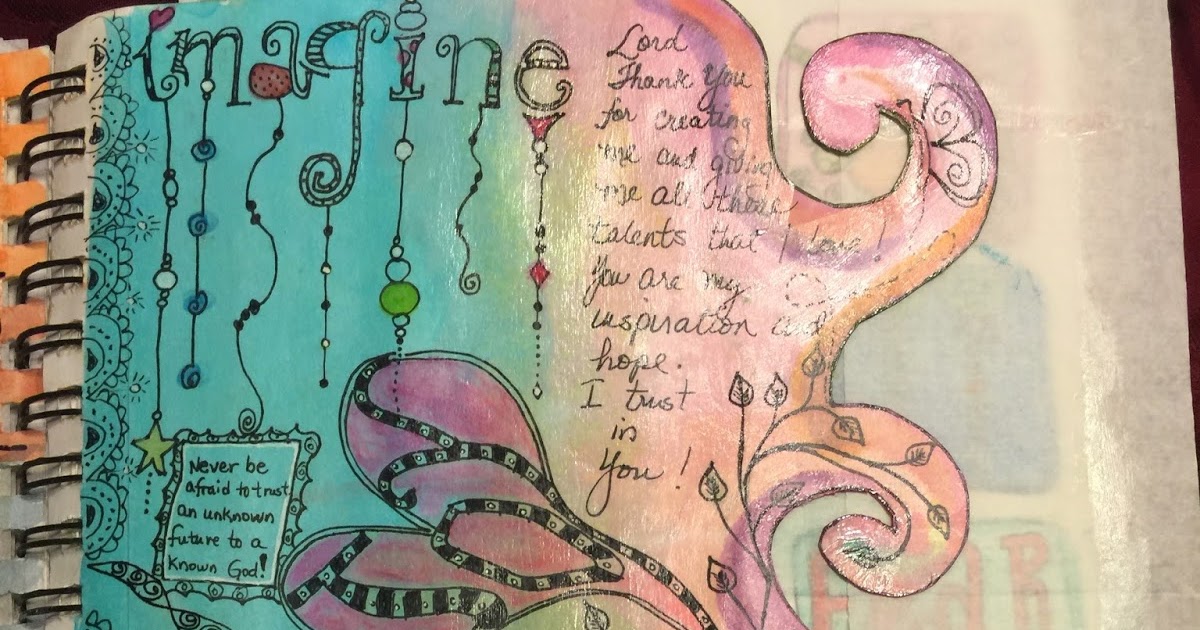 imagine
Lord
Thank You
for creating
me and giving
me all these
talents that I love!
You are my
inspiration and
hope.
I trust
in
You!
Never be
afraid to trust
an unknown
future to a
known God!